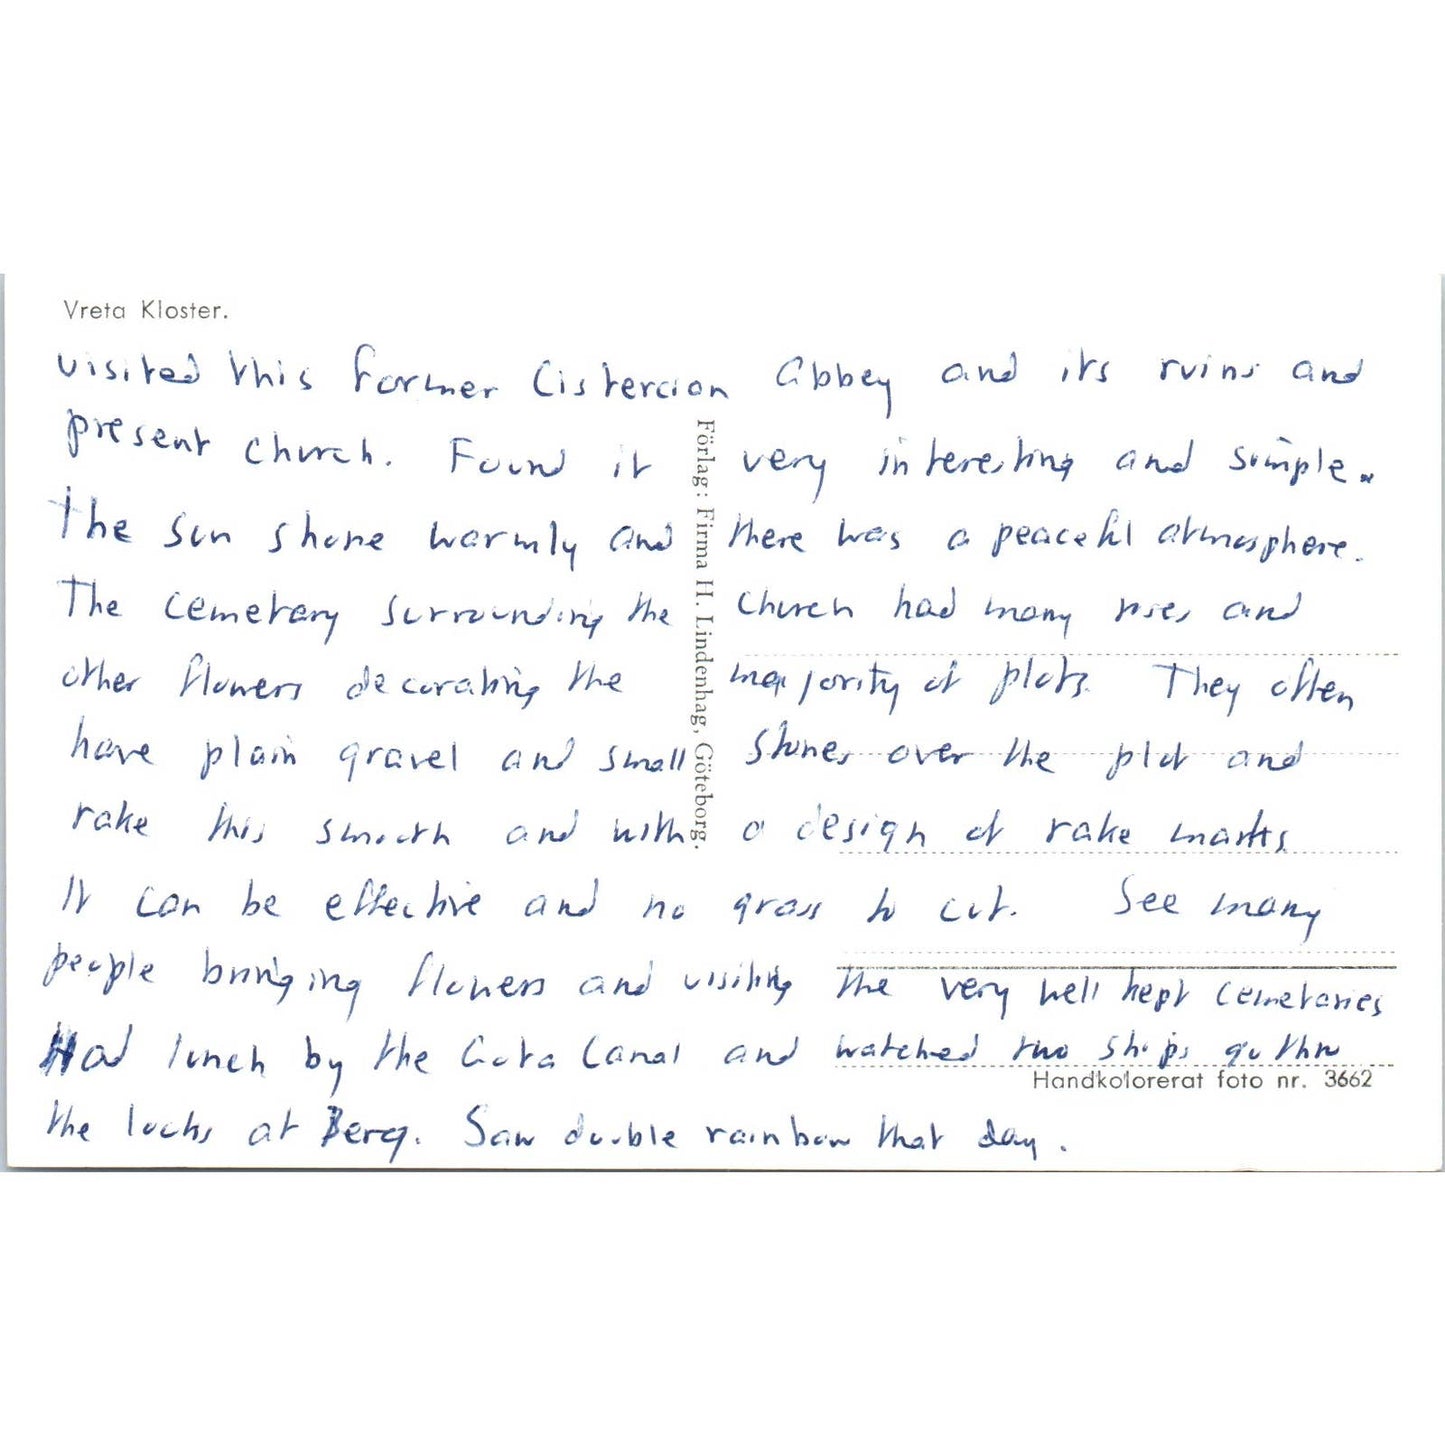 Vreta Kloster.
visited this former Cistercian abbey and its ruins and
present church. Found it very interesting and simple.
The sun shone warmly and there was a peaceful atmosphere.
The cemetary surrounding the church had many roses and
other flowers decorating the majority of plots. They often
have plain gravel and small stones over the plot and
rake this smooth and with a design of rake marks.
It can be effective and no grass to cut. See many
people bringing flowers and visiting the very well kept cemetaries
Had lunch by the Gota Canal and watched two ships go thru
the locks at Berg. Saw double rainbow that day.
Förlag: Firma H. Lindenhag, Göteborg.
Handkolorerat foto nr. 3662